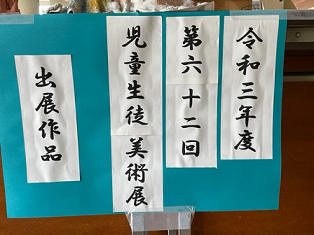 令和三年度
第六十二回
児童生徒美術展
出展作品